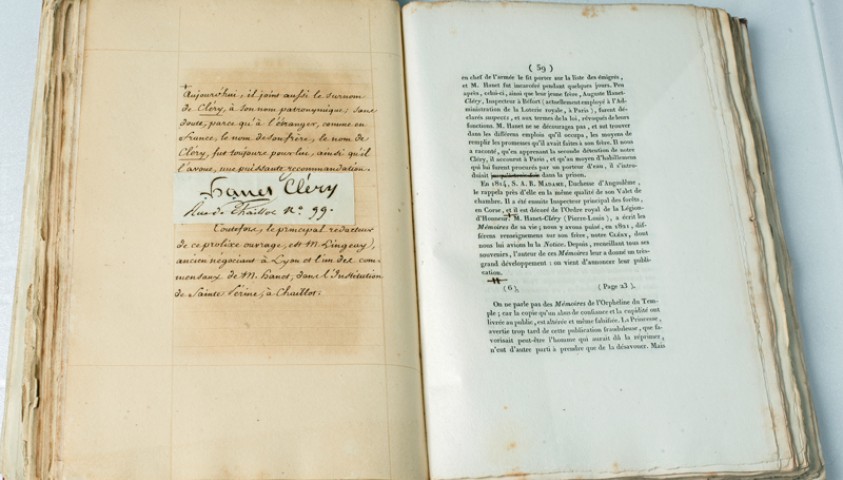 +
Aujourd'hui, il joint aussi le surnom
de Cléry, à son nom patronymique; sans
doute, parce qu'à l'étranger, comme en
France, le nom de son frère, le nom de
Cléry, fut toujours pour lui, ainsi qu'il
l'avoue, une puissante recommandation.
Hanet Cléry
Rue de Chaillot N.º 99.
Toutefois, le principal rédacteur
de ce prolixe ouvrage, est M. Linguay,
ancien négociant à Lyon et l'un des com-
mensaux de M. Hanet, dans l'Institution
de Sainte Périne, à Chaillot.
( 59 )
en chef de l'armée le fit porter sur la liste des émigrés,
et M. Hanet fut incarcéré pendant quelques jours. Peu
après, celui-ci, ainsi que leur jeune frère, Auguste Hanet-
Cléry, Inspecteur à Béfort (actuellement employé à l'Ad-
ministration de la Loterie royale, à Paris), furent dé-
clarés suspects, et aux termes de la loi, révoqués de leurs
fonctions. M. Hanet ne se découragea pas, et sut trouver
dans les différens emplois qu'il occupa, les moyens de
remplir les promesses qu'il avait faites à son frère. Il nous
a raconté, qu'en apprenant la seconde détention de notre
Cléry, il accourut à Paris, et qu'au moyen d'habillemens
qui lui furent procurés par un porteur d'eau, il s'intro-
duisit dans la prison.
En 1814, S. A. R. MADAME, Duchesse d'Angoulême,
le rappela près d'elle en la même qualité de son Valet de
chambre. Il a été ensuite Inspecteur principal des forêts,
en Corse, et il est décoré de l'Ordre royal de la Légion-
d'Honneur. M. Hanet-Cléry (Pierre-Louis), a écrit les
Mémoires de sa vie; nous y avons puisé, en 1821, dif-
férens renseignemens sur son frère, notre CLÉRY, dont
nous lui avions lu la Notice. Depuis, recueillant tous ses
souvenirs, l'auteur de ces Mémoires leur a donné un très-
grand développement : on vient d'annoncer leur publi-
cation.
(6)     ( Page 23 ).
On ne parle pas des Mémoires de l'Orpheline du Tem-
ple; car la copie qu'un abus de confiance et la cupidité ont
livrée au public, est altérée et même falsifiée. La Princesse,
avertie trop tard de cette publication frauduleuse, que fa-
vorisait peut-être l'homme qui aurait dû la réprimer,
n'eut d'autre parti à prendre que de la désavouer. Mais